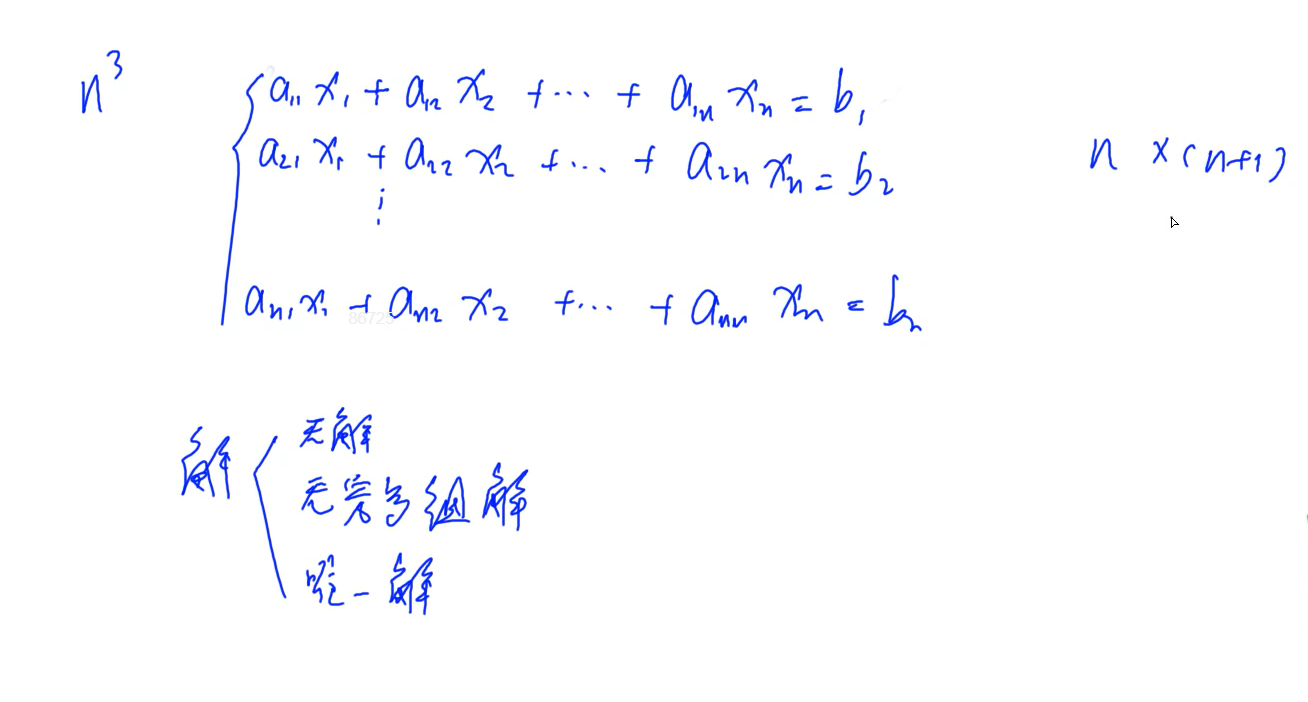 n³
a₁₁ x₁ + a₁₂ x₂ + ··· + a₁ₙ xₙ = b₁
a₂₁ x₁ + a₂₂ x₂ + ··· + a₂ₙ xₙ = b₂
n × (n+1)
⋮
aₙ₁ x₁ + aₙ₂ x₂ + ··· + aₙₙ xₙ = bₙ
解
无解
无穷多组解
唯一解